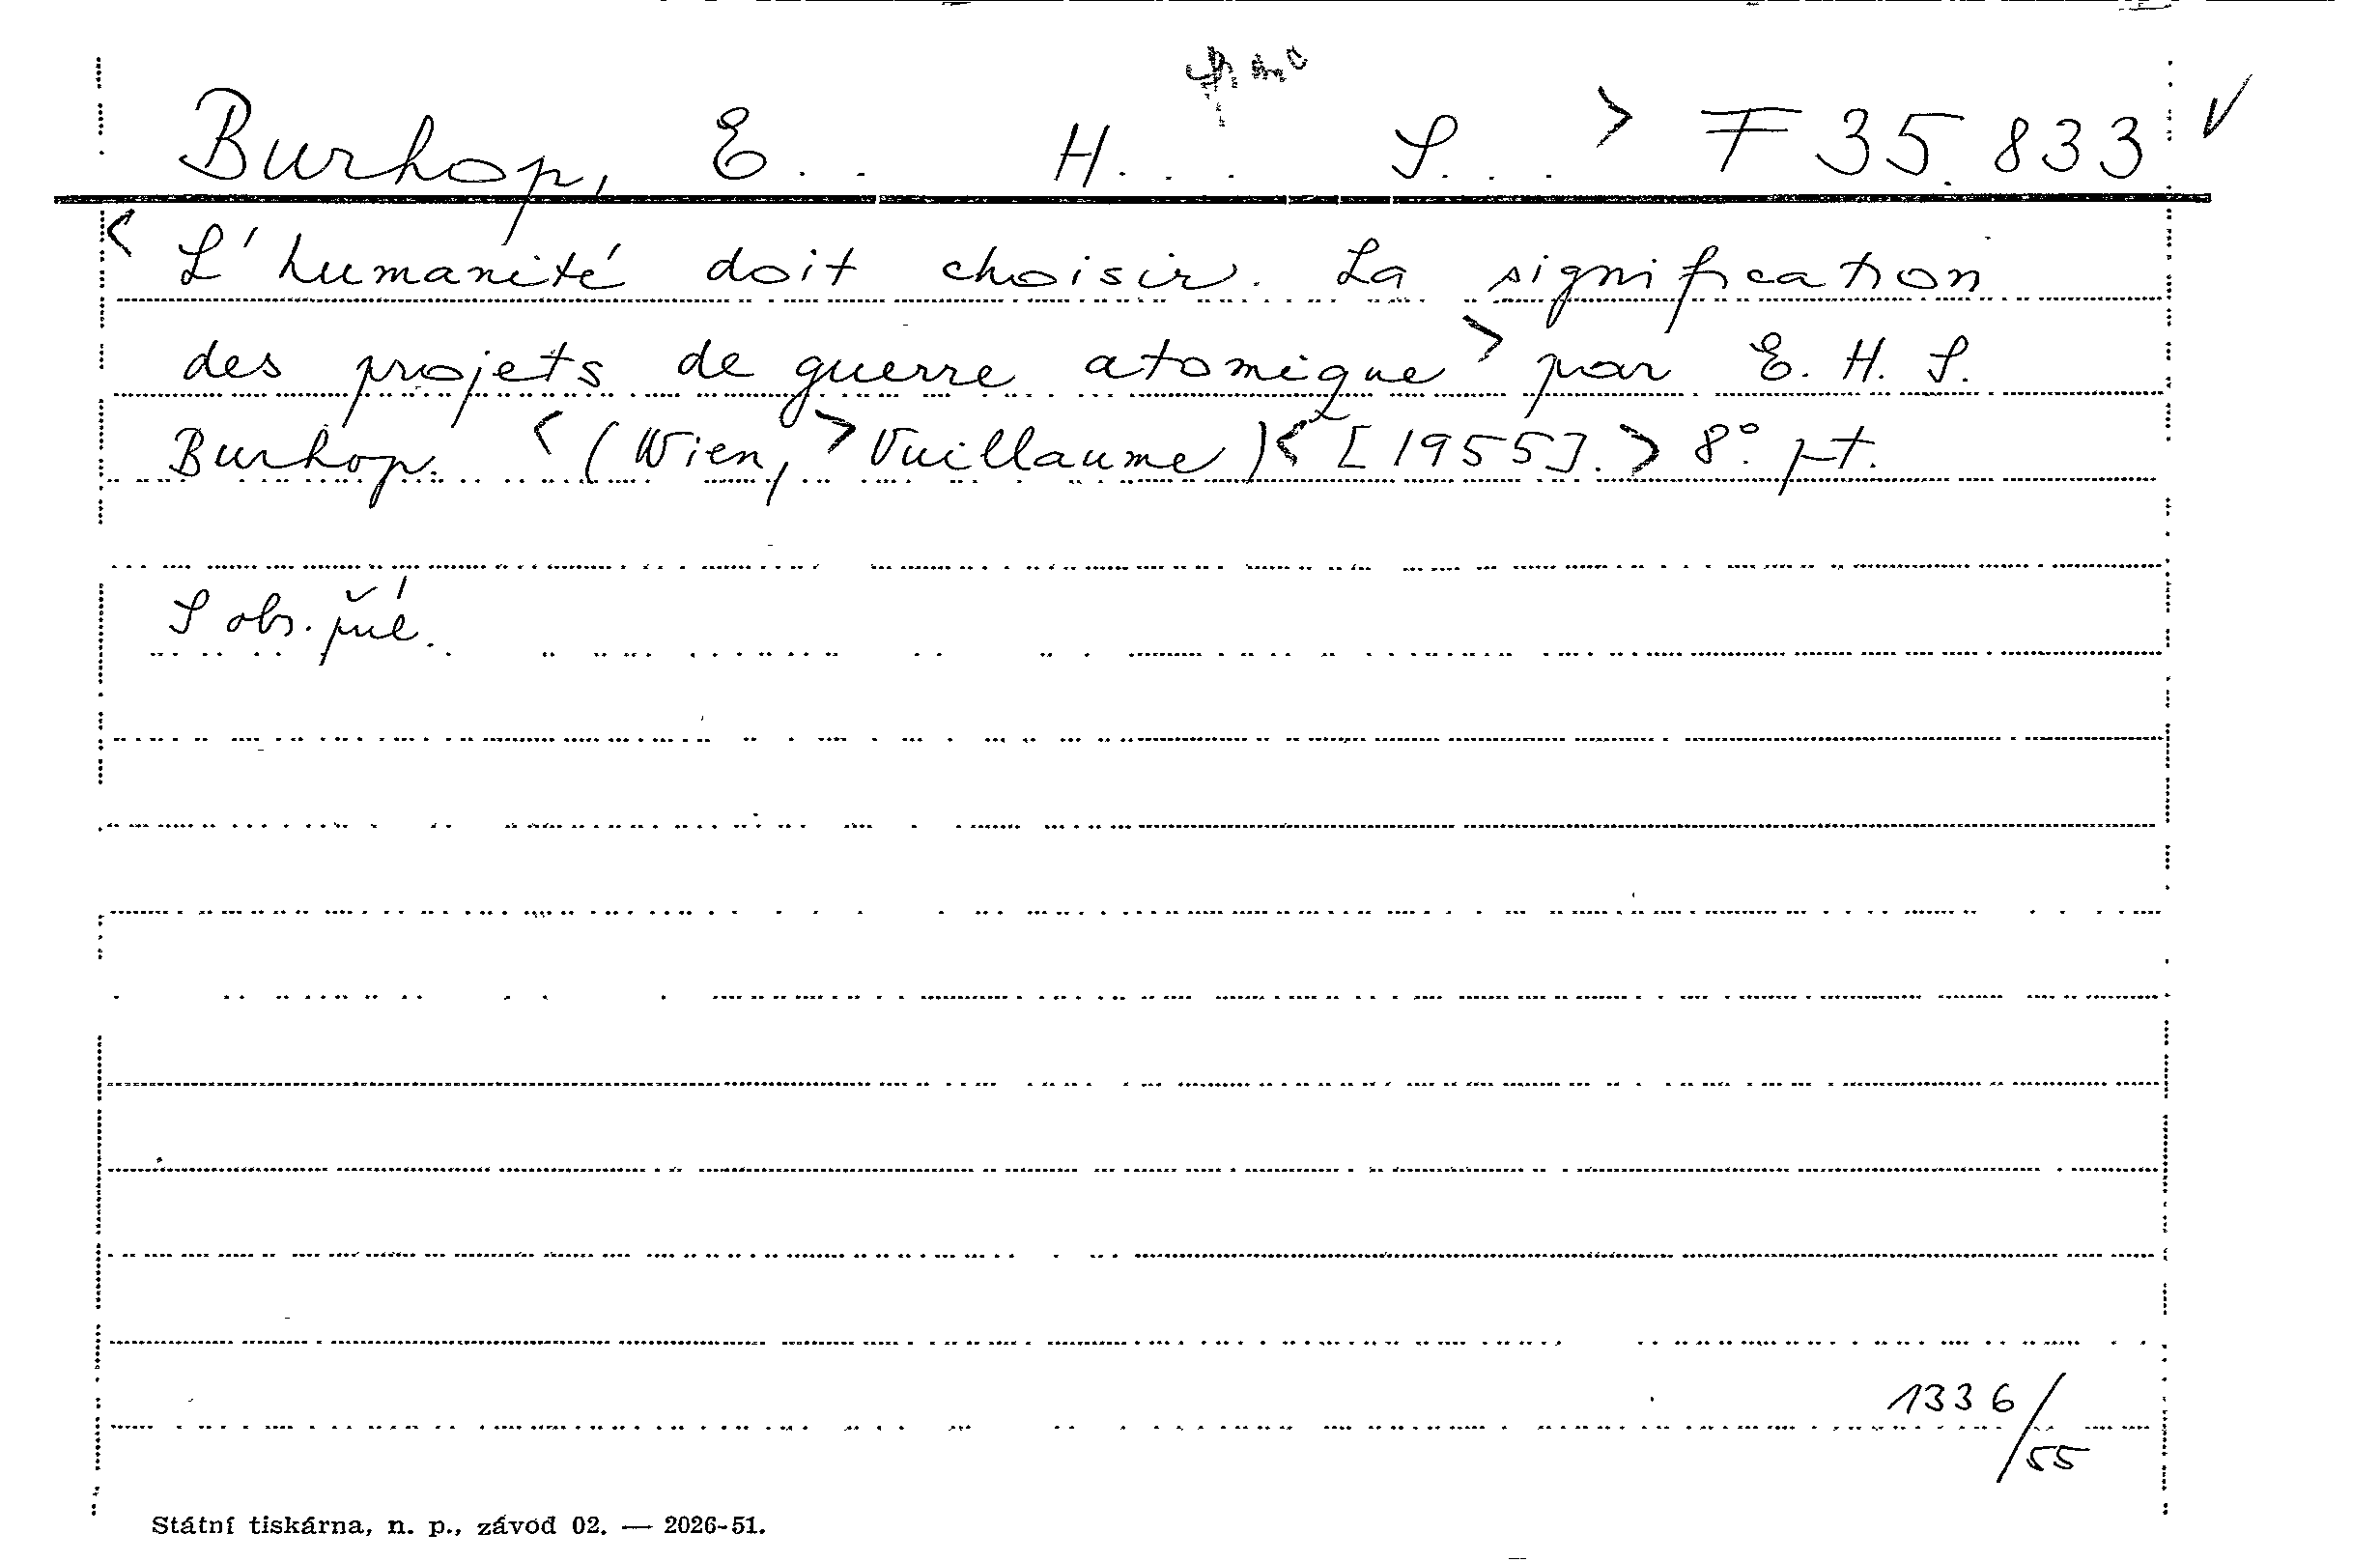 Burhop, E.. H... S... > F 35.833 √
< L'humanité doit choisir. La signification
des projets de guerre atomique > par E. H. S.
Burhop. < (Wien, > Vuillaume) < [1955]. > 8° pt.
S obr. příl.
1336/55
Státní tiskárna, n. p., závod 02. — 2026-51.